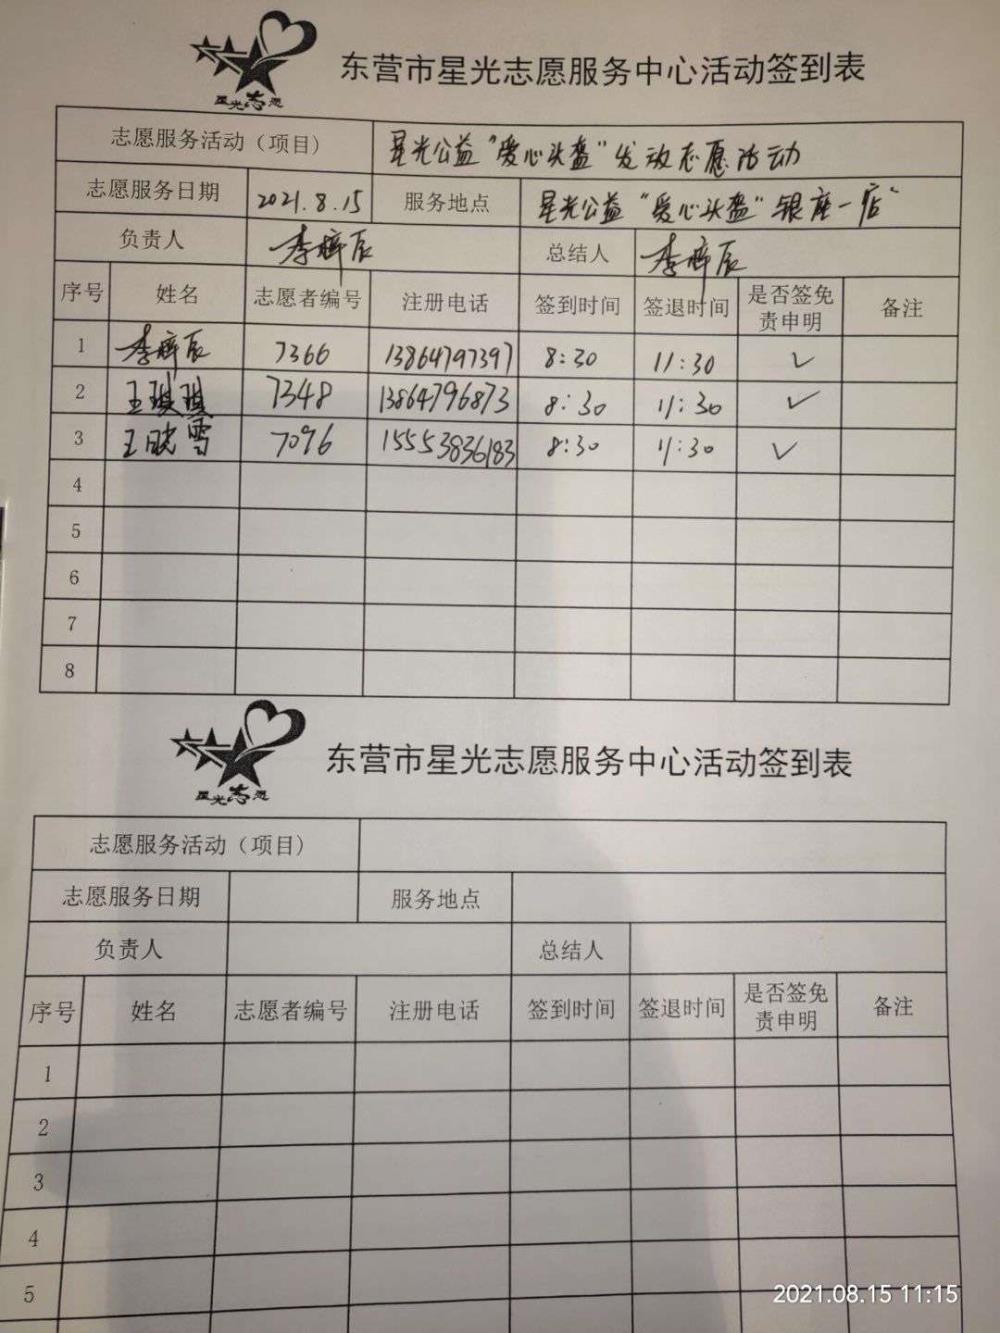 星光志愿
东营市星光志愿服务中心活动签到表
志愿服务活动（项目） 星光公益“爱心头盔”发放志愿活动
志愿服务日期 2021.8.15 服务地点 星光公益“爱心头盔”银座一店
负责人 李梓辰 总结人 李梓辰
序号 姓名 志愿者编号 注册电话 签到时间 签退时间 是否签免责申明 备注
1 李梓辰 7366 13864797397 8:30 11:30 ✓
2 王琪琪 7348 13864796873 8:30 11:30 ✓
3 王晓雪 7096 15553836183 8:30 11:30 ✓
4
5
6
7
8
星光志愿
东营市星光志愿服务中心活动签到表
志愿服务活动（项目）
志愿服务日期 服务地点
负责人 总结人
序号 姓名 志愿者编号 注册电话 签到时间 签退时间 是否签免责申明 备注
1
2
3
4
5
2021.08.15 11:15